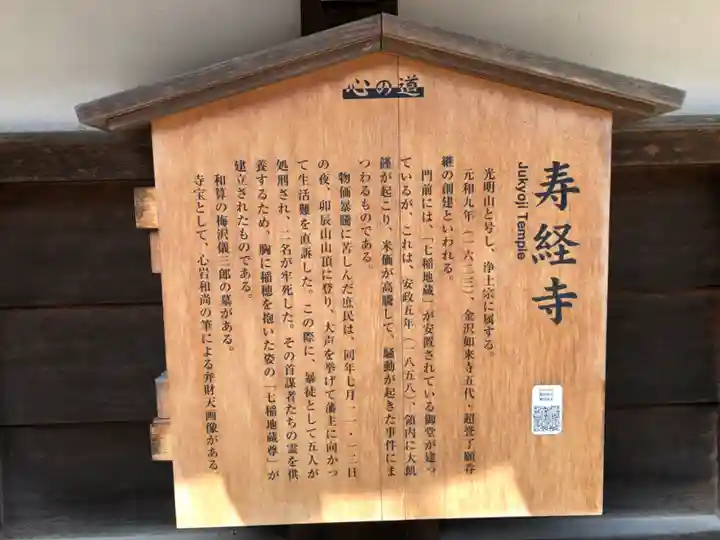 心の道
寿経寺
Jukyoji Temple
光明山と号し、浄土宗に属する。
元和九年（一六二三）、金沢如来寺五代・超誉了願呑
継の創建といわれる。
門前には、「七稲地蔵」が安置されている御堂が建っ
ているが、これは、安政五年（一八五八）、領内に大飢
饉が起こり、米価が高騰して、騒動が起きた事件にま
つわるものである。
物価暴騰に苦しんだ庶民は、同年七月一一・一二日
の夜、卯辰山山頂に登り、大声を挙げて藩主に向かっ
て生活難を直訴した。この際に、暴徒として五人が
処刑され、二名が牢死した。その首謀者たちの霊を供
養するため、胸に稲穂を抱いた姿の「七稲地蔵尊」が
建立されたものである。
和算の梅沢儀三郎の墓がある。
寺宝として、心岩和尚の筆による弁財天画像がある。